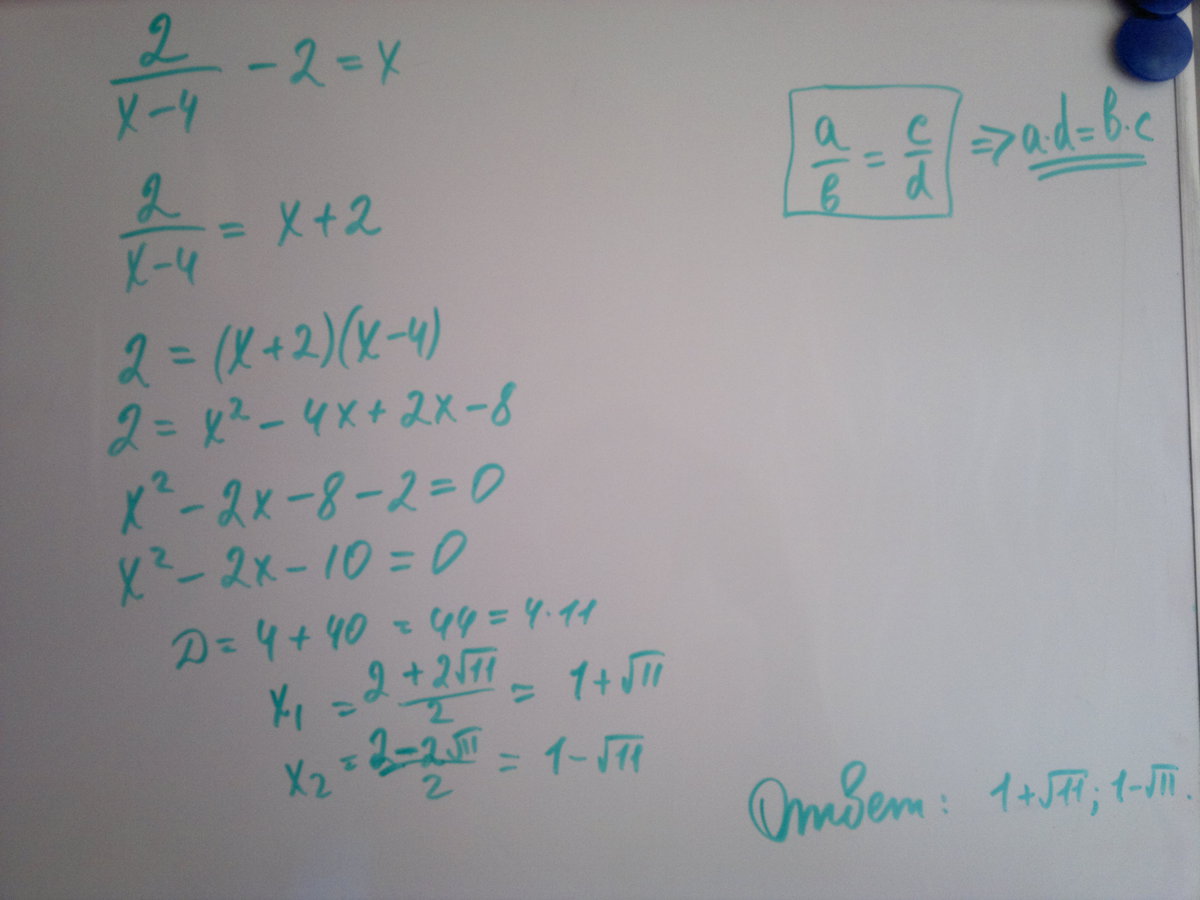 2/(x-4) - 2 = x
a/b = c/d => a·d = b·c
2/(x-4) = x+2
2 = (x+2)(x-4)
2 = x² - 4x + 2x - 8
x² - 2x - 8 - 2 = 0
x² - 2x - 10 = 0
D = 4 + 40 = 44 = 4·11
x₁ = (2+2√11)/2 = 1+√11
x₂ = (2-2√11)/2 = 1-√11
Ответ: 1+√11; 1-√11.